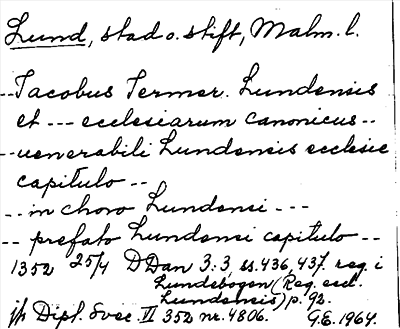 Lund, stad o. stift, Malm. l.
--Jacobus Termer. Lundensis
et --- ecclesiarum canonicus--
--uenerabili Lundensis ecclesie
capitulo --
-- in choro Lundensi ---
-- prefato Lundensi capitulo --
1352 25/4 DDan 3:3, ss. 436, 437. reg. i
Lundebogen (Reg. eccl.
Lundensis) p. 92.
jfr Dipl. Svec. VI 352 nr. 4806. G.E. 1964.